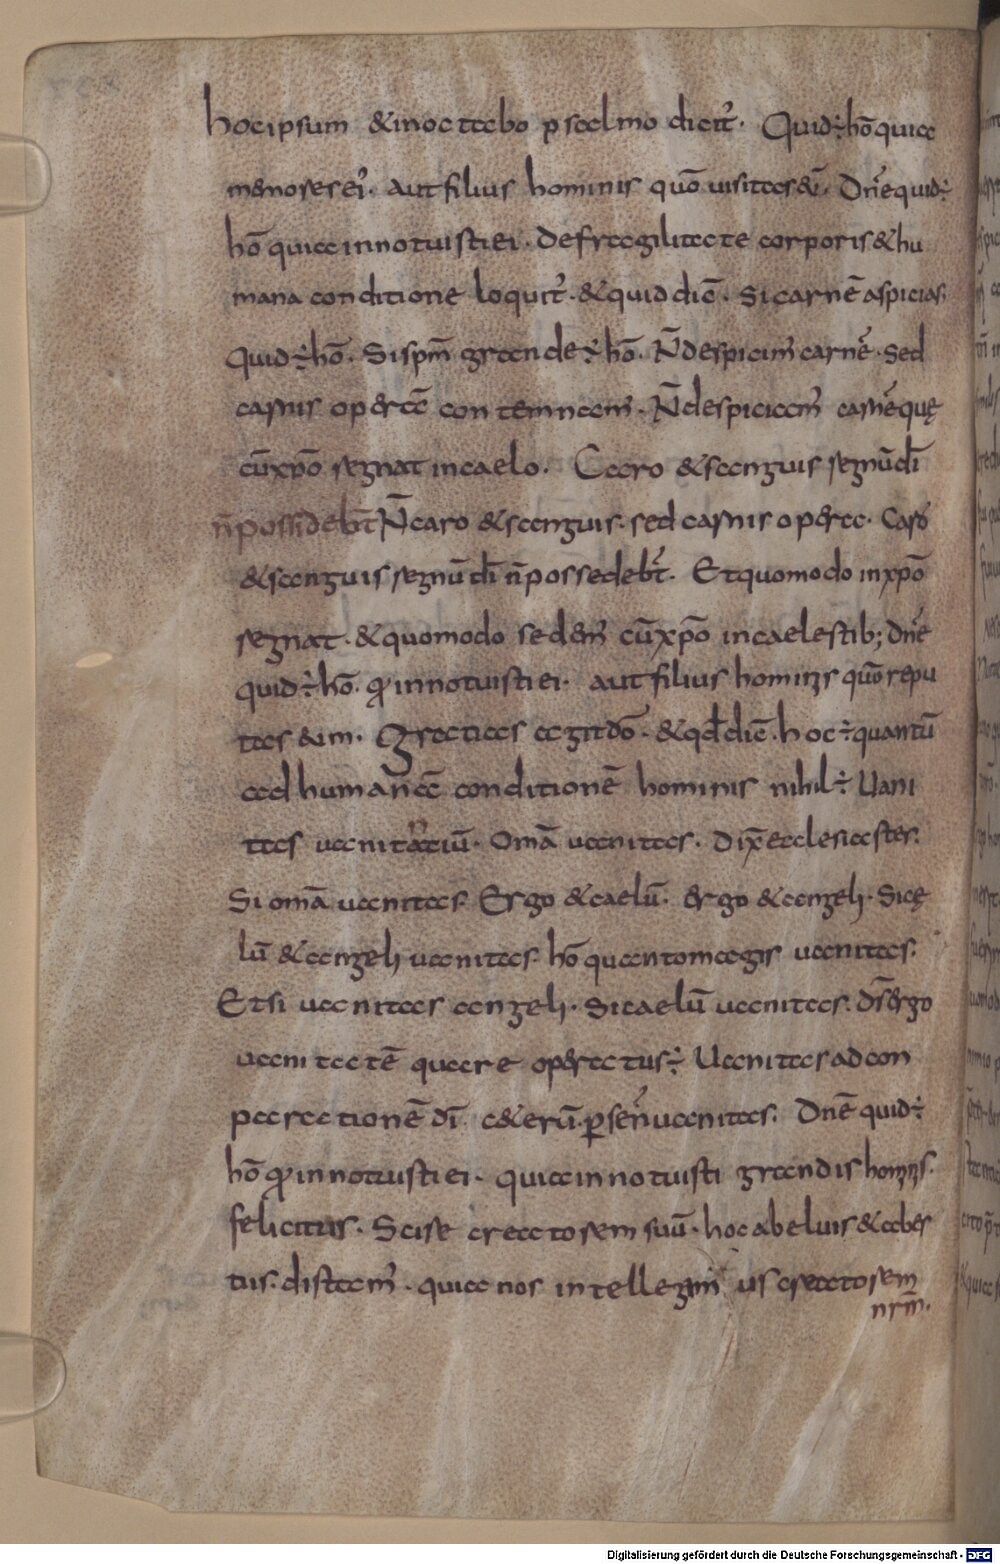 hocipsum &inoctabo psalmo dicit̄. Quid÷hō quia
m&mores ei̓. aut filius hominis quō uisitas eū. Dn̄e quid÷
hō quia innotuisti ei. de fragilitate corporis & hu
mana conditione loquit̄. & quid dic̄. Si carnē aspicias.
Quid÷hō. Si sp̄m grande÷hō. N̄ despicim̓ carnē. sed
carnis opera contemnam̓. N̄ despiciam̓ carnē quę
cū xp̄o regnat in caelo. Caro & sanguis regnū dī
n̄ possidebt̄ N̄ caro & sanguis. sed carnis opera. Caro
& sanguis regnū dī n̄ possedebt̄. Et quomodo in xp̄o
regnat. & quomodo sedem̓ cū xp̄o in caelestib; Dn̄e
quid÷hō. q̄ innotuisti ei. aut filius hominis quō repu
tas eum. Gratias agit dō. & qđ dic̄. hoc÷quantū
ad humanā conditionē hominis nihil÷ Uani
tas uanitatiū. Omā uanitas. Dix̄ ecclesiastes.
Si omā uanitas Ergo & caelū. ergo & angeli. Si cę
lū & angeli uanitas. hō quanto magis uanitas.
Et si uanitas angeli. Si caelū uanitas. ds̄ ergo
uanitatē quare operatus÷ Uanitas ad con
parationē dī. c&erū. ꝑ se n̄ uanitas. Dn̄e quid÷
hō q̄ innotuisti ei. quia innotuisti grandis hominis.
felicitas. Scire creatorem suū. hoc a beluis & abes
tiis. distam̓. quia nos intellegim̓ us creatorem
nrm̄.
Digitalisierung gefördert durch die Deutsche Forschungsgemeinschaft - DFG